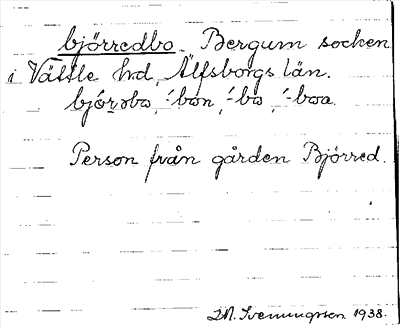 björredbo. Bergum socken
i Vättle hrd, Älfsborgs län.
bjórəbo, ´-bon, ´-bo, ´-boa.
Person från gården Björred.
Svenningsson 1938.